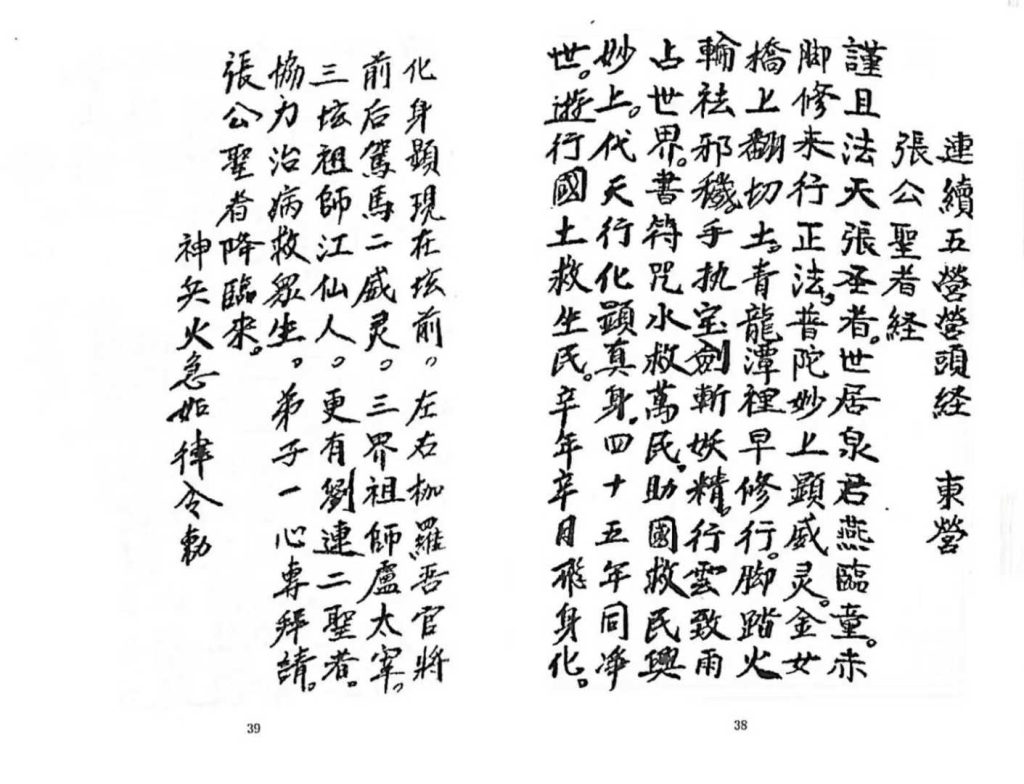 連續五營營頭経　東營
張公聖者経
謹且法天張圣者。世居泉君燕臨童。赤
脚修来行正法，普陀妙上顕威灵。金女
橋上翻切土，青龍潭裡早修行。脚踏火
輪祛邪穢，手执宝劍斬妖精，行雲致雨
占世界。書符咒水救萬民，助國救民興
妙上。代天行化顕真身，四十五年同净
世。遊行國土救生民。辛年辛月飛身化。
38
化身顕現在坛前。左右枷羅吾官將
前后駕馬二威灵。三界祖師盧太宰。
三坛祖師江仙人。更有劉連二聖者。
協力治病救眾生。弟子一心專拜請。
張公聖者降臨來。
神兵火急如律令勅
39